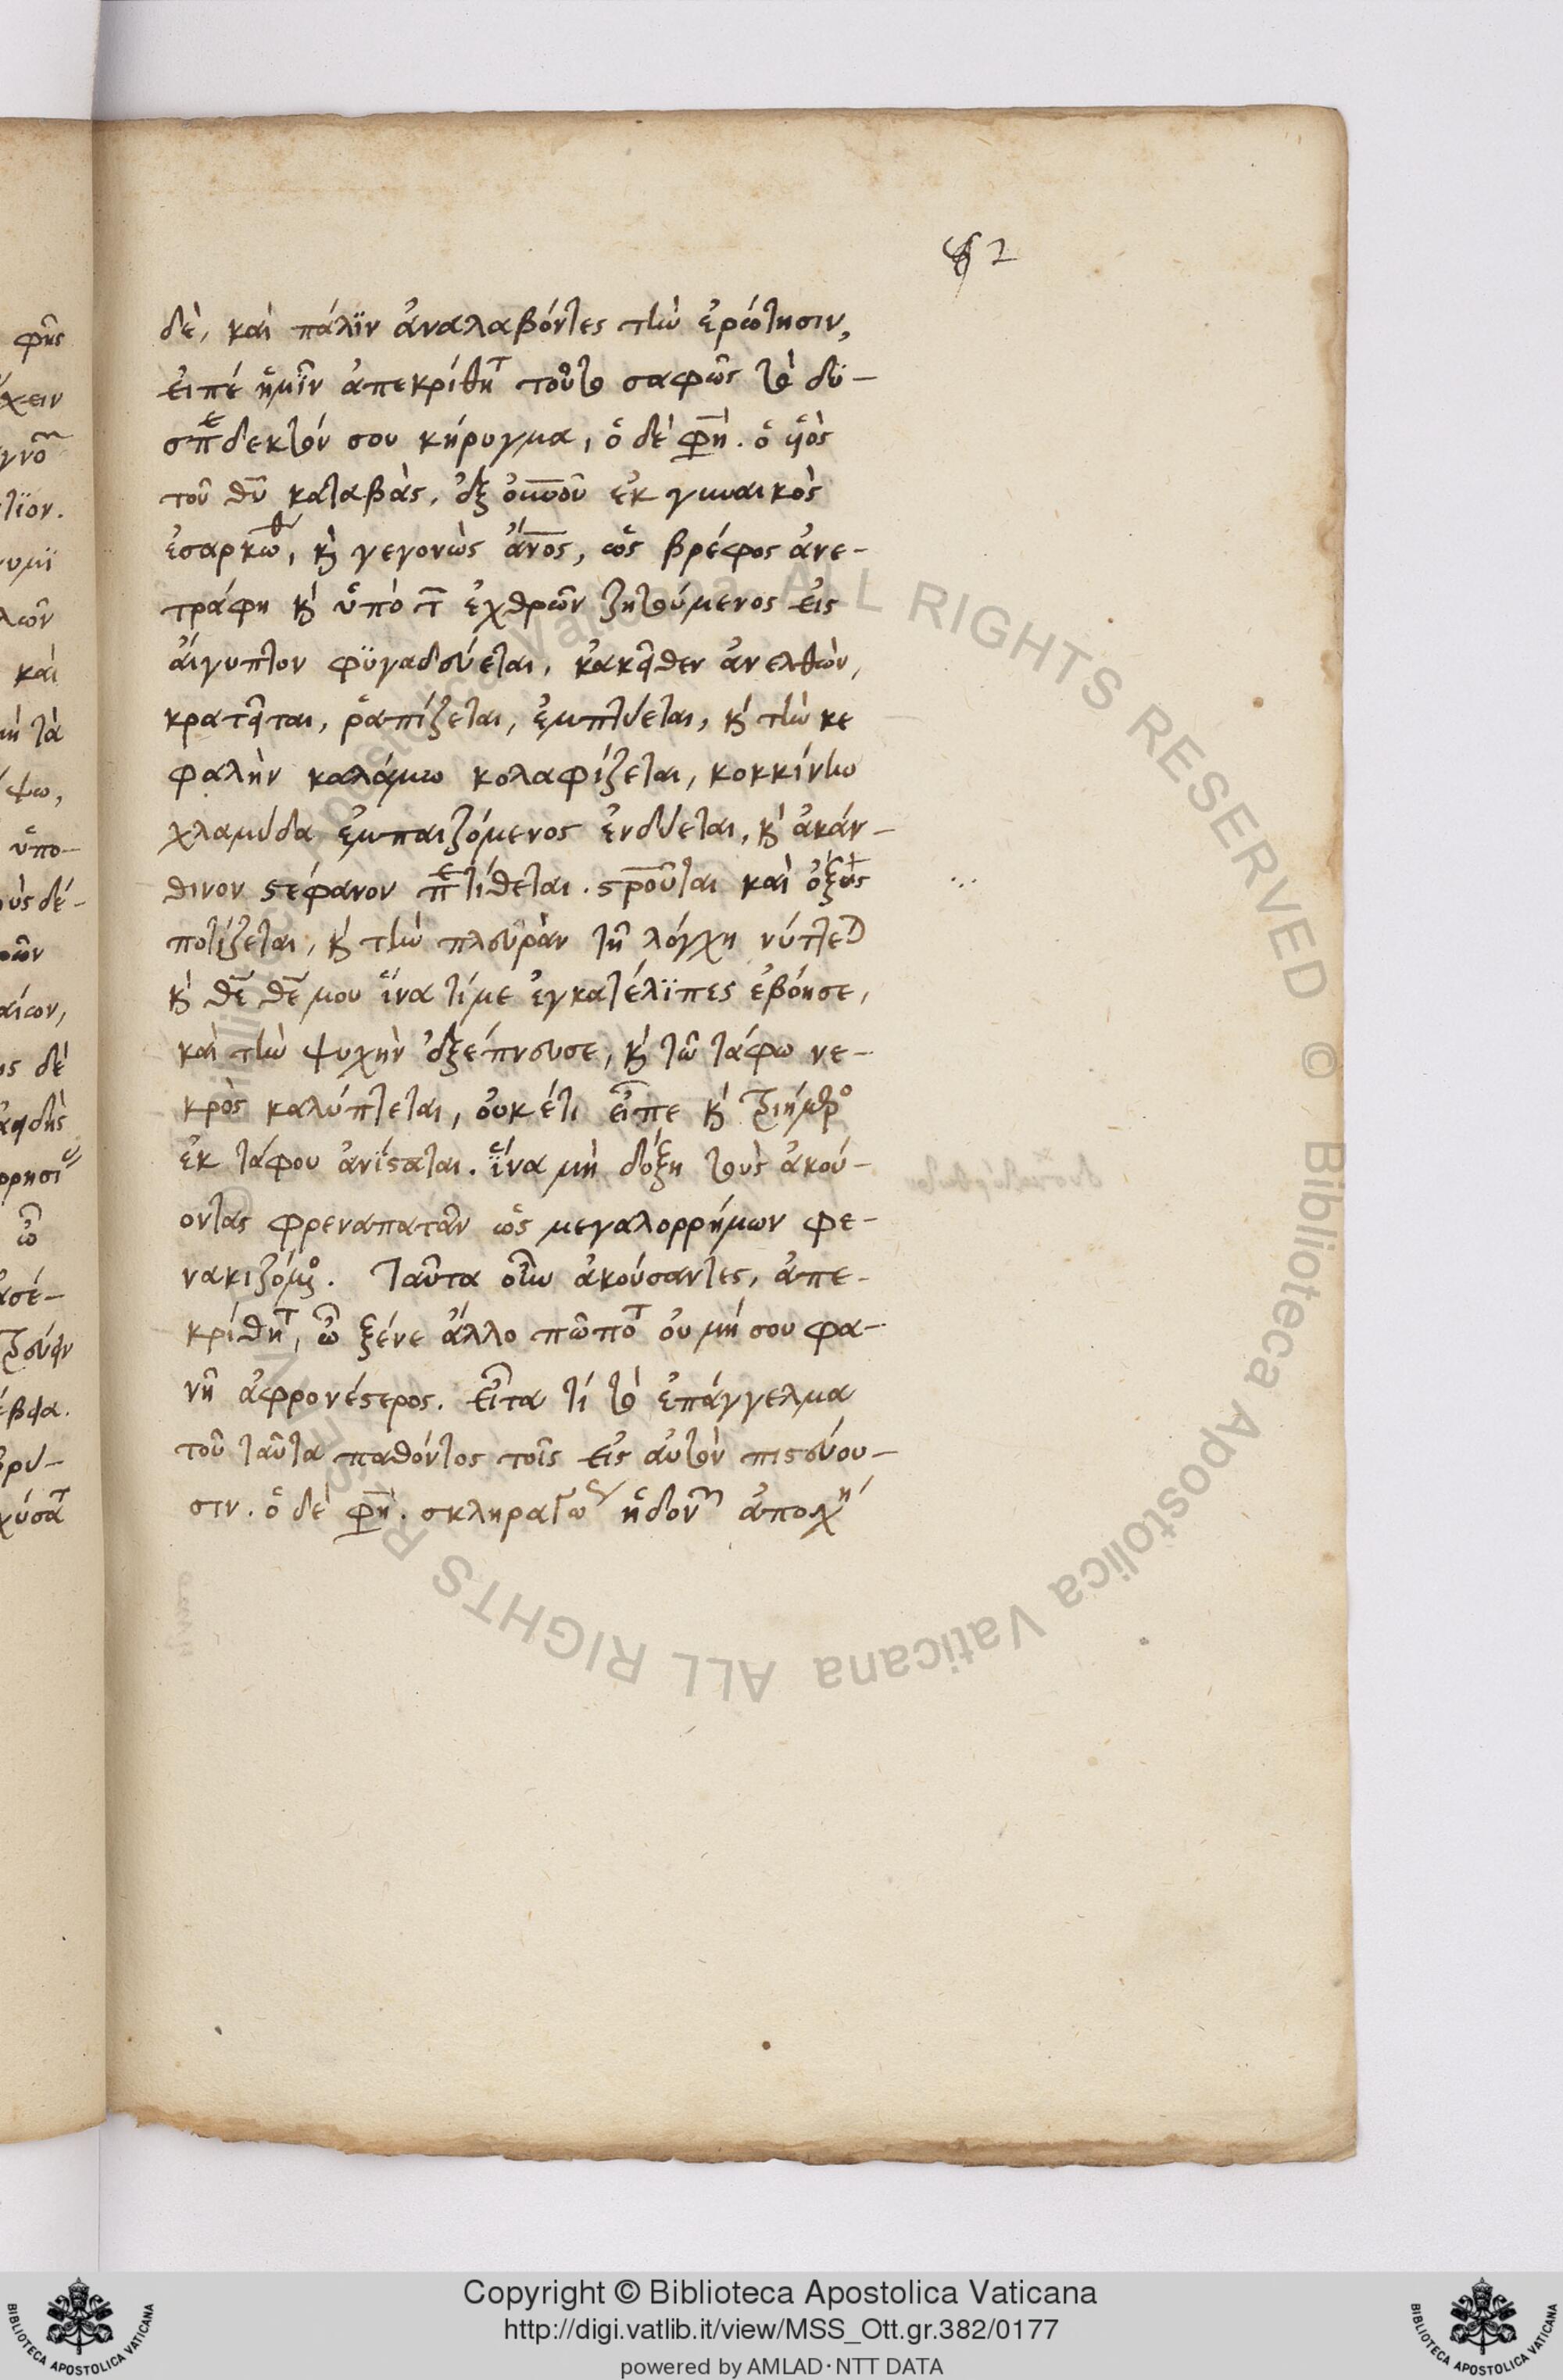 2
δὲ, καὶ πάλϊν ἀναλαβόντες τὴν ἐρώτησιν,
εἰπέ ἡμῖν ἀπεκρίθητ τοῦτο σαφῶς τὸ δϋ-
σπεδεκτόν σου κήρυγμα, ὁ δὲ φη. ὁ ὑιὸς
τοῦ θυ καταβὰς, ἐξ οὐνοῦ ἐκ γυναικὸς
ἐσαρκώθ, κὶ γεγονὼς ἄνος, ὡς βρέφος ἀνε-
τράφη κὶ ὑπὸ τ ἐχθρῶν ζητούμενος εἰς
ἀίγυπτον φϋγαδεύεται, κἀκεῖθεν ἀνελθὼν,
κρατεῖται, ῥαπίζεται, ἐμπτύεται, κὶ τὴν κε
φαλὴν καλάμω κολαφίζεται, κοκκίνην
χλαμύδα ἐμπαιζόμενος ἐνδύεται, κὶ ἀκάν-
θινον στέφανον πετίθεται. στροῦται καὶ ὄξους
ποτίζεται, κὶ τὴν πλευρὰν τῆ λόγχη νύττε
κὶ θε θε μου ἵνα τί με ἐγκατέλϊπες ἐβόησε,
καὶ τὴν ψυχὴν ἐξέπνευσε, κὶ τῶ τάφω νε-
κρὸς καλύπτεται, οὐκ έτι εἶπε κὶ τριήμερο
ἐκ τάφου ἀνίσταται. ἵνα μὴ δόξη τοὺς ἀκού-
οντας φρεναπατᾶν ὡς μεγαλορρήμων φε-
νακιζόμο. Ταῦτα οὖν ἀκούσαντες, ἀπε-
κρίθητ, ὦ ξένε ἄλλο πῶποτ οὐ μή σου φα-
νῆ ἀφρονέστερος. εἶτα τί τὸ ἐπάγγελμα
τοῦ ταῦτα παθόντος τοῖς εἰς αὐτὸν πιστεύου-
σιν. ὁ δὲ φη. σκληραγω ἡδον ἀποχή
Copyright © Biblioteca Apostolica Vaticana
http://digi.vatlib.it/view/MSS_Ott.gr.382/0177
powered by AMLAD·NTT DATA
BIBLIOTECA APOSTOLICA VATICANA
BIBLIOTECA APOSTOLICA VATICANA